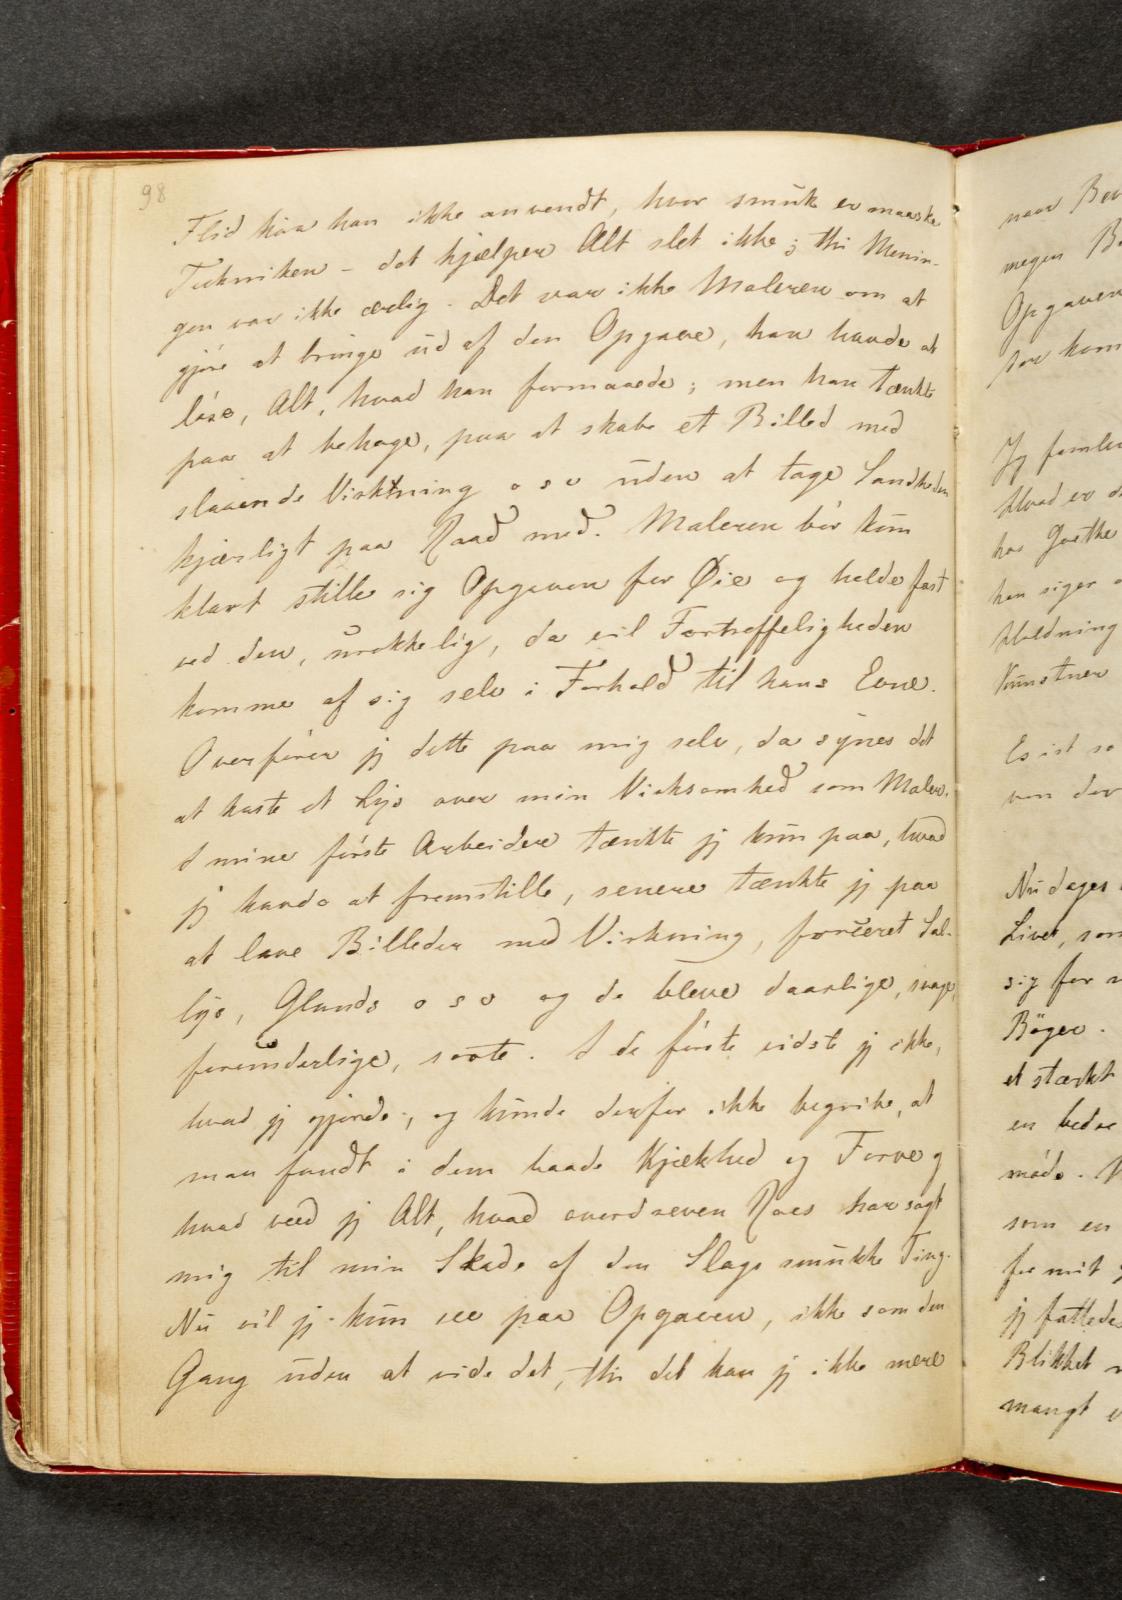 98
Flid har han ikke anvendt, hvor smuk er maaske
Tekniken – det hjælper Alt slet ikke; thi Menin-
gen var ikke ærlig. Det var ikke Maleren om at
gjøre at bringe ud af den Opgave, han havde at
løse, Alt, hvad han formaaede; men han tænkte
paa at behage, paa at skabe et Billed med
slaaende Virkning o s v uden at tage Sandheden
kjærligt paa Raad med. Maleren bør kun
klart stille sig Opgaven for Øie og holde fast
ved den, urokkelig, da vil Fortreffeligheden
komme af sig selv i Forhold til hans Evne.
Overfører jeg dette paa mig selv, da synes det
at kaste et Lys over min Virksomhed som Maler.
I mine første Arbeider tænkte jeg kun paa, hvad
jeg havde at fremstille, senere tænkte jeg paa
at lave Billeder med Virkning, forceret Sol-
lys, Glands o s v og de bleve daarlige, svage,
forunderlige, sorte. I de første vidste jeg ikke,
hvad jeg gjorde; og kunde derfor ikke begribe, at
man fandt i dem baade Kjækhed og Farve og
hvad veed jeg Alt, hvad overdreven Roes har sagt
mig til min Skade af den Slags smukke Ting.
Nu vil jeg kun see paa Opgaven, ikke som den
Gang uden at vide det, thi det kan jeg ikke mere
naar
megen
Opgaven
Jeg
Hvad er
har Goethe
han siger
Kunstner
Es ist so
von der
Nu dages
Livet, som
sig for
Bøger.
et stærkt
en bedre
som en
for mit
jeg
Blikket
mangt